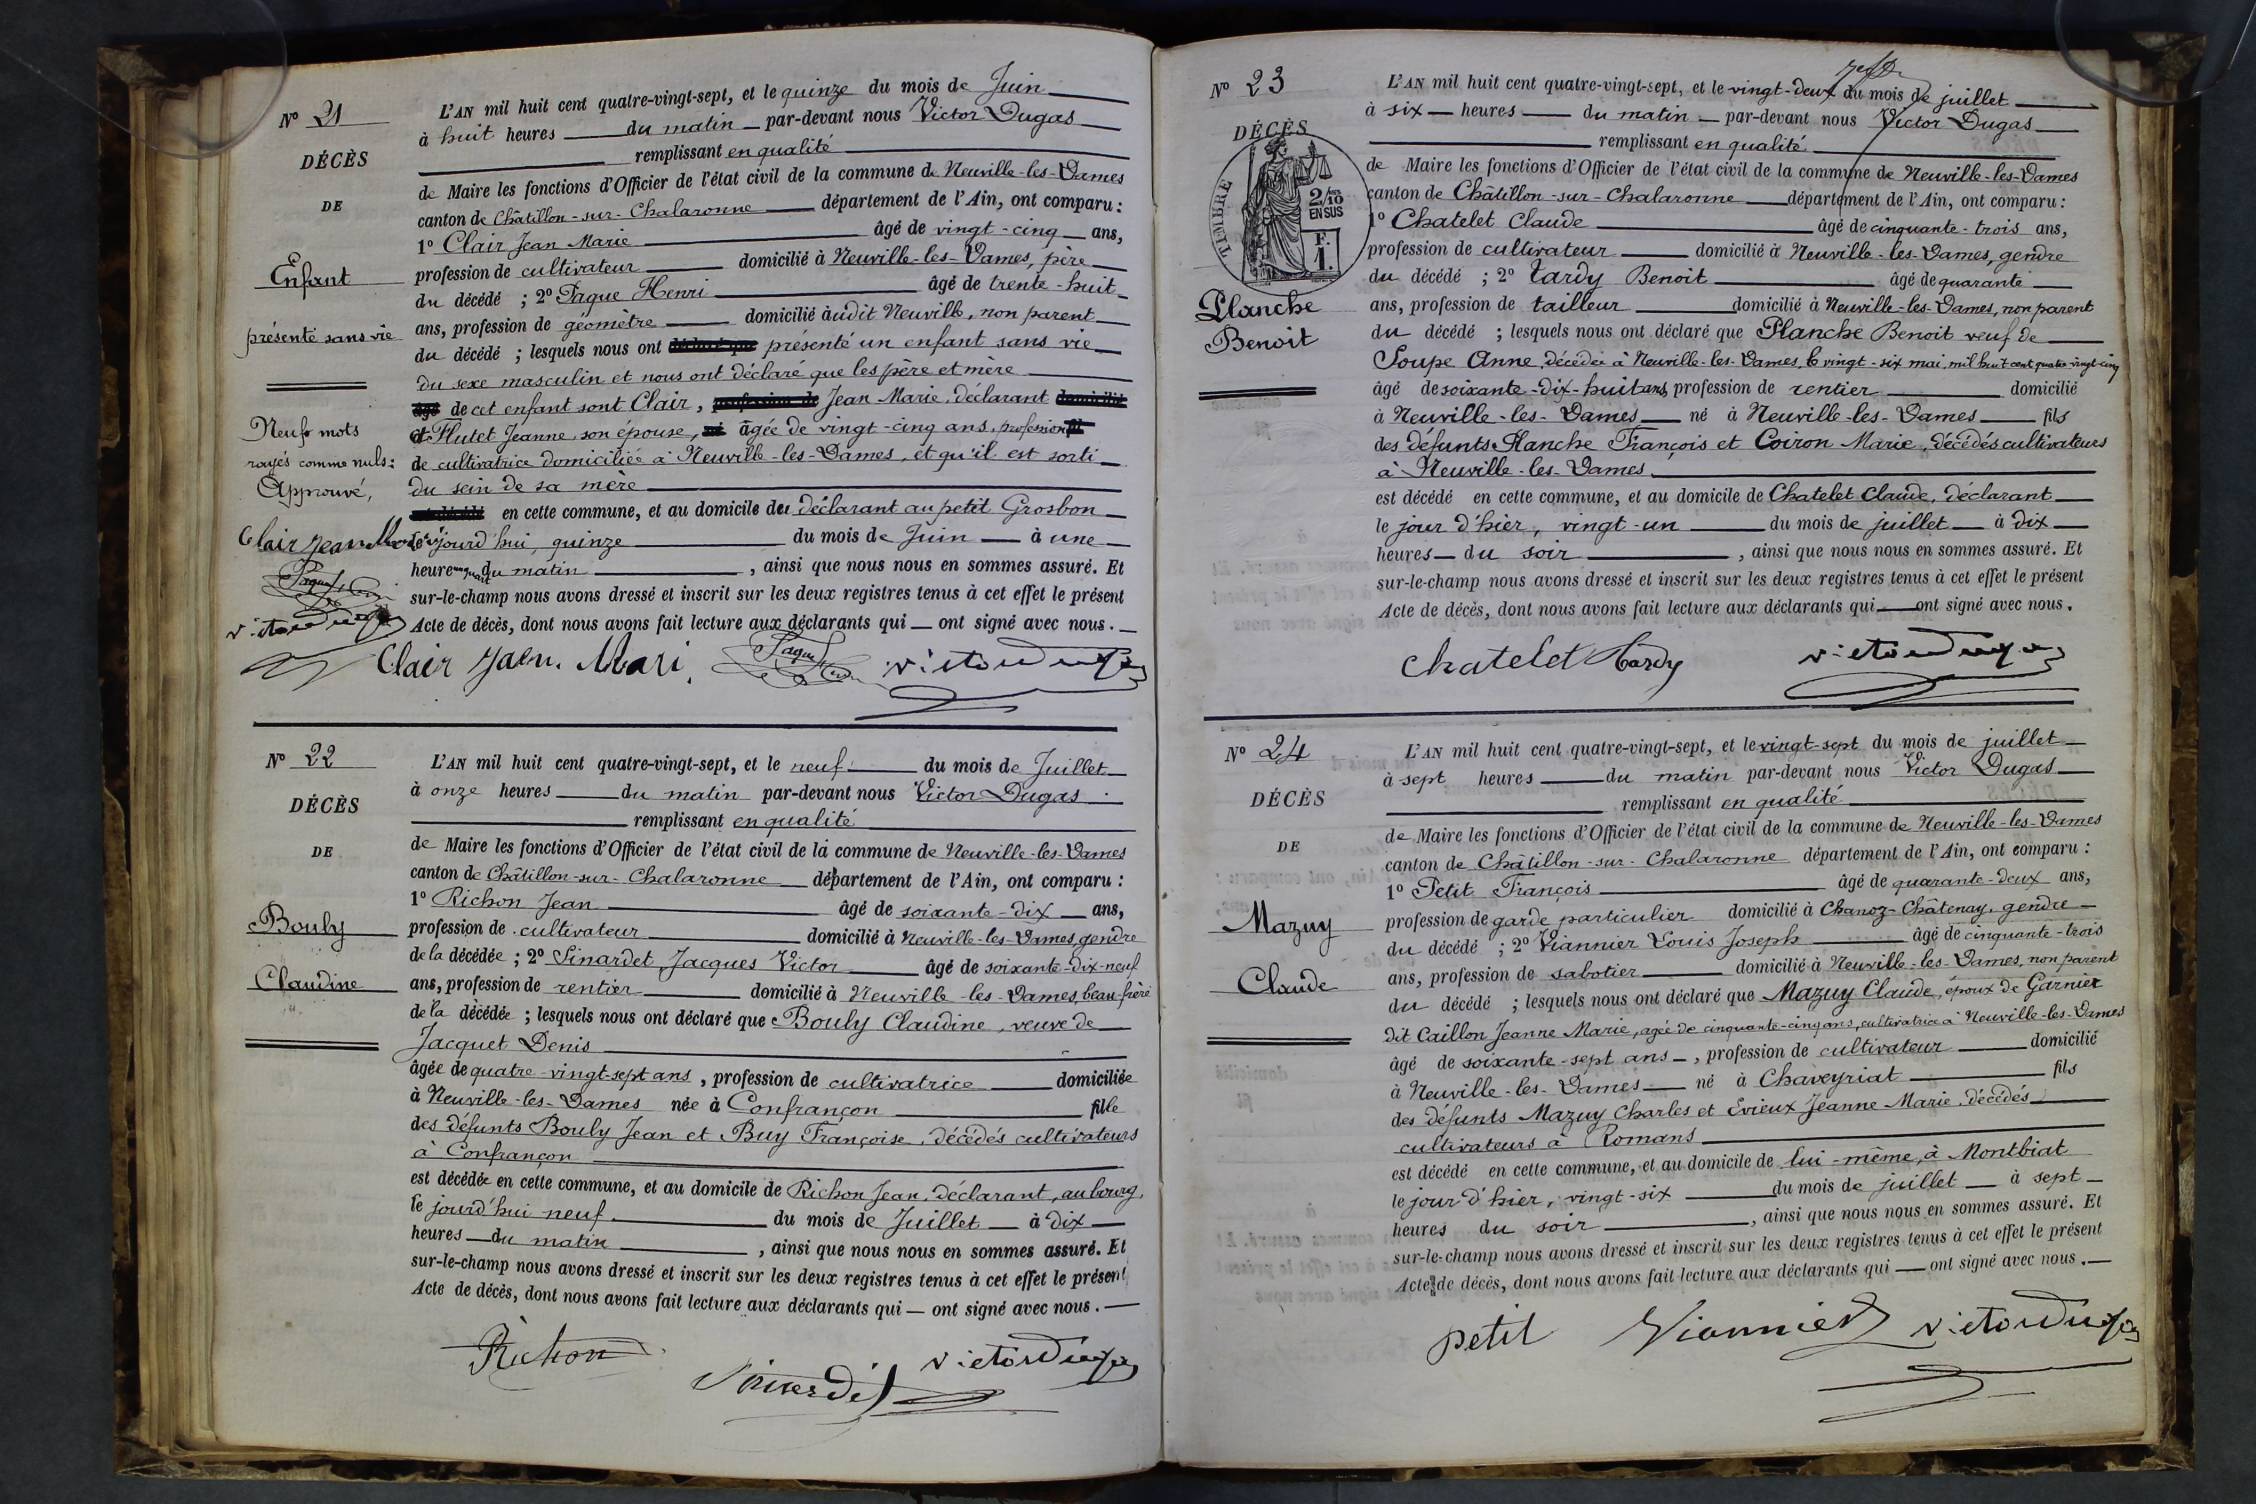 Nº 21
DÉCÈS
DE
Enfant
présenté sans vie
Neuf mots
rayés comme nuls:
Approuvé,
Clair Jean Marie
Paquet
Victor Dugas
L'AN mil huit cent quatre-vingt-sept, et le quinze du mois de Juin
à huit heures du matin par-devant nous Victor Dugas
remplissant en qualité
de Maire les fonctions d'Officier de l'état civil de la commune de Neuville-les-Dames
canton de Châtillon-sur-Chalaronne département de l'Ain, ont comparu :
1º Clair Jean Marie âgé de vingt-cinq ans,
profession de cultivateur domicilié à Neuville-les-Dames, père
du décédé ; 2º Paque Henri âgé de trente-huit
ans, profession de géomètre domicilié audit Neuville, non parent
du décédé ; lesquels nous ont déclaré que présenté un enfant sans vie
du sexe masculin et nous ont déclaré que les père et mère
âgé de cet enfant sont Clair, profession de Jean Marie, déclarant domicilié
et Flutet Jeanne, son épouse, né âgée de vingt-cinq ans, profession
de cultivatrice domiciliée à Neuville-les-Dames, et qu'il est sorti
du sein de sa mère
est décédé en cette commune, et au domicile du déclarant au petit Grosbon
le jourd'hui, quinze du mois de Juin à une
heure un quart du matin , ainsi que nous nous en sommes assuré. Et
sur-le-champ nous avons dressé et inscrit sur les deux registres tenus à cet effet le présent
Acte de décès, dont nous avons fait lecture aux déclarants qui ont signé avec nous.
Clair Jaen Mari Paque Victor Dugas
Nº 22
DÉCÈS
DE
Bouly
Claudine
L'AN mil huit cent quatre-vingt-sept, et le neuf du mois de Juillet
à onze heures du matin par-devant nous Victor Dugas
remplissant en qualité
de Maire les fonctions d'Officier de l'état civil de la commune de Neuville-les-Dames
canton de Châtillon-sur-Chalaronne département de l'Ain, ont comparu :
1º Richon Jean âgé de soixante-dix ans,
profession de cultivateur domicilié à Neuville-les-Dames, gendre
de la décédée ; 2º Sinardet Jacques Victor âgé de soixante-dix-neuf
ans, profession de rentier domicilié à Neuville-les-Dames, beau-frère
de la décédée ; lesquels nous ont déclaré que Bouly Claudine, veuve de
Jacquet Denis
âgée de quatre-vingt-sept ans, profession de cultivatrice domiciliée
à Neuville-les-Dames née à Confrançon fille
des défunts Bouly Jean et Buy Françoise, décédés cultivateurs
à Confrançon
est décédée en cette commune, et au domicile de Richon Jean, déclarant, au bourg,
le jourd'hui neuf du mois de Juillet à dix
heures du matin , ainsi que nous nous en sommes assuré. Et
sur-le-champ nous avons dressé et inscrit sur les deux registres tenus à cet effet le présent
Acte de décès, dont nous avons fait lecture aux déclarants qui ont signé avec nous.
Richon Sinardet Victor Dugas
Nº 23
DÉCÈS
TIMBRE
2/10
EN SUS
F.
1.
Planche
Benoit
L'AN mil huit cent quatre-vingt-sept, et le vingt-deux du mois de juillet
à six heures du matin par-devant nous Victor Dugas
remplissant en qualité
de Maire les fonctions d'Officier de l'état civil de la commune de Neuville-les-Dames
canton de Châtillon-sur-Chalaronne département de l'Ain, ont comparu :
1º Chatelet Claude âgé de cinquante-trois ans,
profession de cultivateur domicilié à Neuville-les-Dames, gendre
du décédé ; 2º Tardy Benoit âgé de quarante
ans, profession de tailleur domicilié à Neuville-les-Dames, non parent
du décédé ; lesquels nous ont déclaré que Planche Benoit veuf de
Soupe Anne, décédée à Neuville-les-Dames, le vingt-six mai, mil huit cent quatre-vingt-cinq
âgé de soixante-dix-huit ans, profession de rentier domicilié
à Neuville-les-Dames né à Neuville-les-Dames fils
des défunts Planche François et Coiron Marie, décédés cultivateurs
à Neuville-les-Dames
est décédé en cette commune, et au domicile de Chatelet Claude, déclarant
le jour d'hier, vingt-un du mois de juillet à dix
heures du soir , ainsi que nous nous en sommes assuré. Et
sur-le-champ nous avons dressé et inscrit sur les deux registres tenus à cet effet le présent
Acte de décès, dont nous avons fait lecture aux déclarants qui ont signé avec nous.
Chatelet Tardy Victor Dugas
Nº 24
DÉCÈS
DE
Mazuy
Claude
L'AN mil huit cent quatre-vingt-sept, et le vingt-sept du mois de juillet
à sept heures du matin par-devant nous Victor Dugas
remplissant en qualité
de Maire les fonctions d'Officier de l'état civil de la commune de Neuville-les-Dames
canton de Châtillon-sur-Chalaronne département de l'Ain, ont comparu :
1º Petit François âgé de quarante-deux ans,
profession de garde particulier domicilié à Chanoz-Châtenay, gendre
du décédé ; 2º Viannier Louis Joseph âgé de cinquante-trois
ans, profession de sabotier domicilié à Neuville-les-Dames, non parent
du décédé ; lesquels nous ont déclaré que Mazuy Claude, époux de Garnier
dit Caillon Jeanne Marie, agée de cinquante-cinq ans, cultivatrice à Neuville-les-Dames
âgé de soixante-sept ans, profession de cultivateur domicilié
à Neuville-les-Dames né à Chaveyriat fils
des défunts Mazuy Charles et Evieux Jeanne Marie, décédés
cultivateurs à Romans
est décédé en cette commune, et au domicile de lui-même, à Montbiat
le jour d'hier, vingt-six du mois de juillet à sept
heures du soir , ainsi que nous nous en sommes assuré. Et
sur-le-champ nous avons dressé et inscrit sur les deux registres tenus à cet effet le présent
Acte de décès, dont nous avons fait lecture aux déclarants qui ont signé avec nous.
petit Viannier Victor Dugas